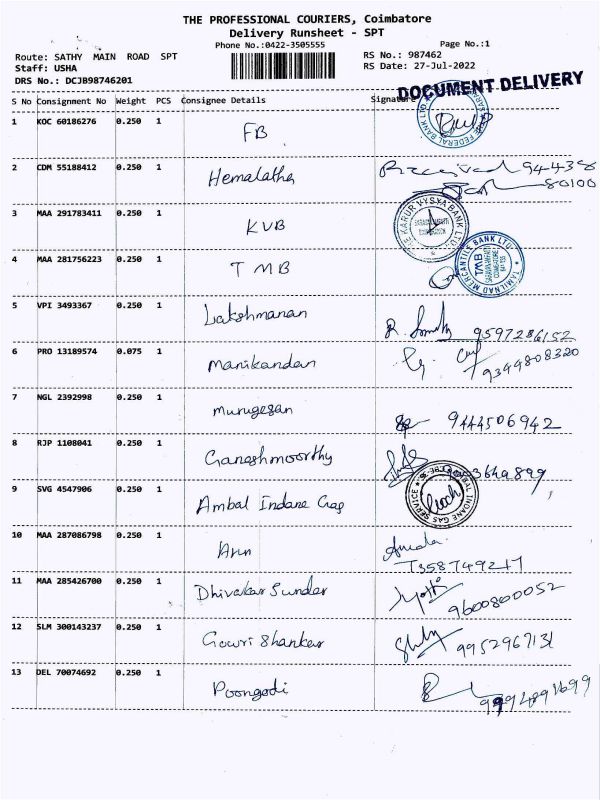 THE PROFESSIONAL COURIERS, Coimbatore
Delivery Runsheet - SPT
Phone No.:0422-3505555
Page No.:1
Route: SATHY MAIN ROAD SPT
RS No.: 987462
Staff: USHA
RS Date: 27-Jul-2022
DRS No.: DCJB98746201
DOCUMENT DELIVERY
S No Consignment No Weight PCS Consignee Details Signature
1 KOC 60186276 0.250 1 FB
FEDERAL BANK LTD
2 CDM 55188412 0.250 1 Hemalatha Received 94438
80100
3 MAA 291783411 0.250 1 KVB
KARUR VYSYA BANK LTD
4 MAA 281756223 0.250 1 TMB
TAMILNAD MERCANTILE BANK LTD
TMB
5 VPI 3493367 0.250 1 Lakshmanan 9597286152
6 PRO 13189574 0.075 1 Manikandan 9344808320
7 NGL 2392998 0.250 1 Murugesan 9444506942
8 RJP 1108041 0.250 1 Ganeshmoorthy
9 SVG 4547906 0.250 1 Ambal Indane Gas
AMBAL INDANE GAS SERVICE
10 MAA 287086798 0.250 1 Arun
7358749217
11 MAA 285426700 0.250 1 Dhivakar Sundar 9600800052
12 SLM 300143237 0.250 1 Gowri Shanker 9952967131
13 DEL 70074692 0.250 1 Poongodi